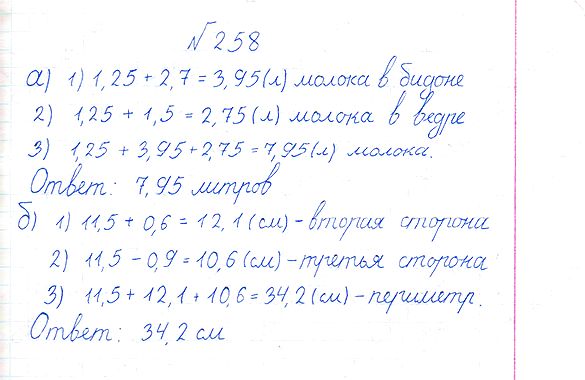 № 258
а) 1) 1,25 + 2,7 = 3,95 (л) молока в бидоне
2) 1,25 + 1,5 = 2,75 (л) молока в ведре
3) 1,25 + 3,95 + 2,75 = 7,95 (л) молока.
Ответ: 7,95 литров
б) 1) 11,5 + 0,6 = 12,1 (см) - вторая сторона
2) 11,5 - 0,9 = 10,6 (см) - третья сторона
3) 11,5 + 12,1 + 10,6 = 34,2 (см) - периметр.
Ответ: 34,2 см